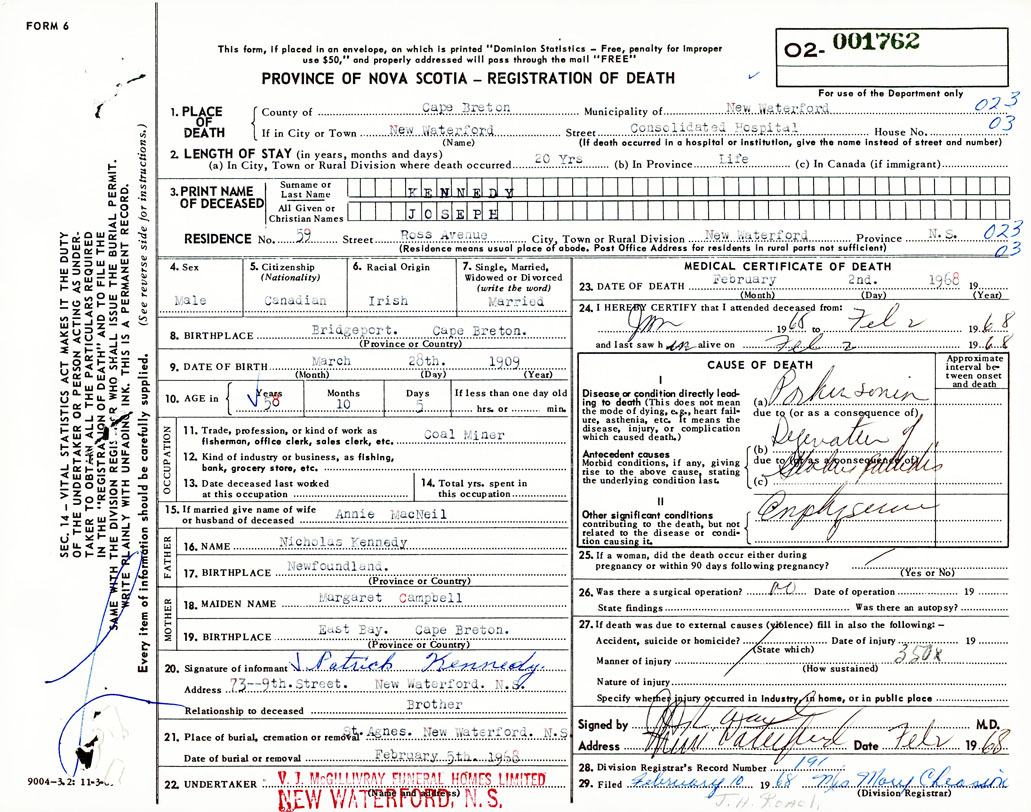 FORM 6
This form, if placed in an envelope, on which is printed "Dominion Statistics – Free, penalty for improper
use $50," and properly addressed will pass through the mail "FREE"
PROVINCE OF NOVA SCOTIA – REGISTRATION OF DEATH
O2- 001762
For use of the Department only
1. PLACE OF DEATH
County of Cape Breton Municipality of New Waterford 023
If in City or Town New Waterford Street Consolidated Hospital House No. 03
(Name) (If death occurred in a hospital or institution, give the name instead of street and number)
2. LENGTH OF STAY (in years, months and days)
(a) In City, Town or Rural Division where death occurred 20 Yrs (b) In Province Life (c) In Canada (if immigrant)
3. PRINT NAME OF DECEASED
Surname or Last Name KENNEDY
All Given or Christian Names JOSEPH
RESIDENCE No. 59 Street Ross Avenue City, Town or Rural Division New Waterford Province N.S. 023
(Residence means usual place of abode. Post Office Address for residents in rural parts not sufficient) 03
4. Sex
Male
5. Citizenship
(Nationality)
Canadian
6. Racial Origin
Irish
7. Single, Married,
Widowed or Divorced
(write the word)
Married
8. BIRTHPLACE Bridgeport. Cape Breton.
(Province or Country)
9. DATE OF BIRTH March 28th. 1909
(Month) (Day) (Year)
10. AGE in Years Months Days If less than one day old
58 10 5 hrs. or min.
OCCUPATION
11. Trade, profession, or kind of work as
fisherman, office clerk, sales clerk, etc. Coal Miner
12. Kind of industry or business, as fishing,
bank, grocery store, etc.
13. Date deceased last worked
at this occupation
14. Total yrs. spent in
this occupation
15. If married give name of wife
or husband of deceased Annie MacNeil
FATHER
16. NAME Nicholas Kennedy
17. BIRTHPLACE Newfoundland.
(Province or Country)
MOTHER
18. MAIDEN NAME Margaret Campbell
19. BIRTHPLACE East Bay. Cape Breton.
(Province or Country)
20. Signature of informant Patrick Kennedy.
Address 73--9th.Street. New Waterford. N.S.
Relationship to deceased Brother
21. Place of burial, cremation or removal St.Agnes. New Waterford. N.S
Date of burial or removal February 5th. 1968
22. UNDERTAKER V. J. McGILLIVRAY FUNERAL HOMES LIMITED
(Name and address)
NEW WATERFORD, N. S.
MEDICAL CERTIFICATE OF DEATH
23. DATE OF DEATH February 2nd. 1968 19
(Month) (Day) (Year)
24. I HEREBY CERTIFY that I attended deceased from:
Jan 1968 to Feb 2 1968
and last saw him alive on Feb 2 1968
CAUSE OF DEATH
Approximate
interval be-
tween onset
and death
I
Disease or condition directly lead-
ing to death (This does not mean
the mode of dying, e.g., heart fail-
ure, asthenia, etc. It means the
disease, injury, or complication
which caused death.)
(a)
due to (or as a consequence of)
Antecedent causes
Morbid conditions, if any, giving
rise to the above cause, stating
the underlying condition last.
(b) of
due to (or as a consequence of)
(c)
II
Other significant conditions
contributing to the death, but not
related to the disease or condi-
tion causing it.
Emphysema
25. If a woman, did the death occur either during
pregnancy or within 90 days following pregnancy?
(Yes or No)
26. Was there a surgical operation? no Date of operation 19
State findings Was there an autopsy?
27. If death was due to external causes (violence) fill in also the following: –
Accident, suicide or homicide? Date of injury 19
(State which)
Manner of injury 350x
(How sustained)
Nature of injury
Specify whether injury occurred in industry, in home, or in public place
Signed by M.D.
Address New Waterford Date Feb 2 1968
28. Division Registrar's Record Number 191
29. Filed February 10 1968 M/s Mary
(Division Registrar)
SEC. 14 – VITAL STATISTICS ACT MAKES IT THE DUTY
OF THE UNDERTAKER OR PERSON ACTING AS UNDER-
TAKER TO OBTAIN ALL THE PARTICULARS REQUIRED
IN THE "REGISTRATION OF DEATH" AND TO FILE THE
SAME WITH THE DIVISION REGISTRAR WHO SHALL ISSUE THE BURIAL PERMIT.
WRITE PLAINLY WITH UNFADING INK. THIS IS A PERMANENT RECORD.
Every item of information should be carefully supplied. (See reverse side for instructions.)